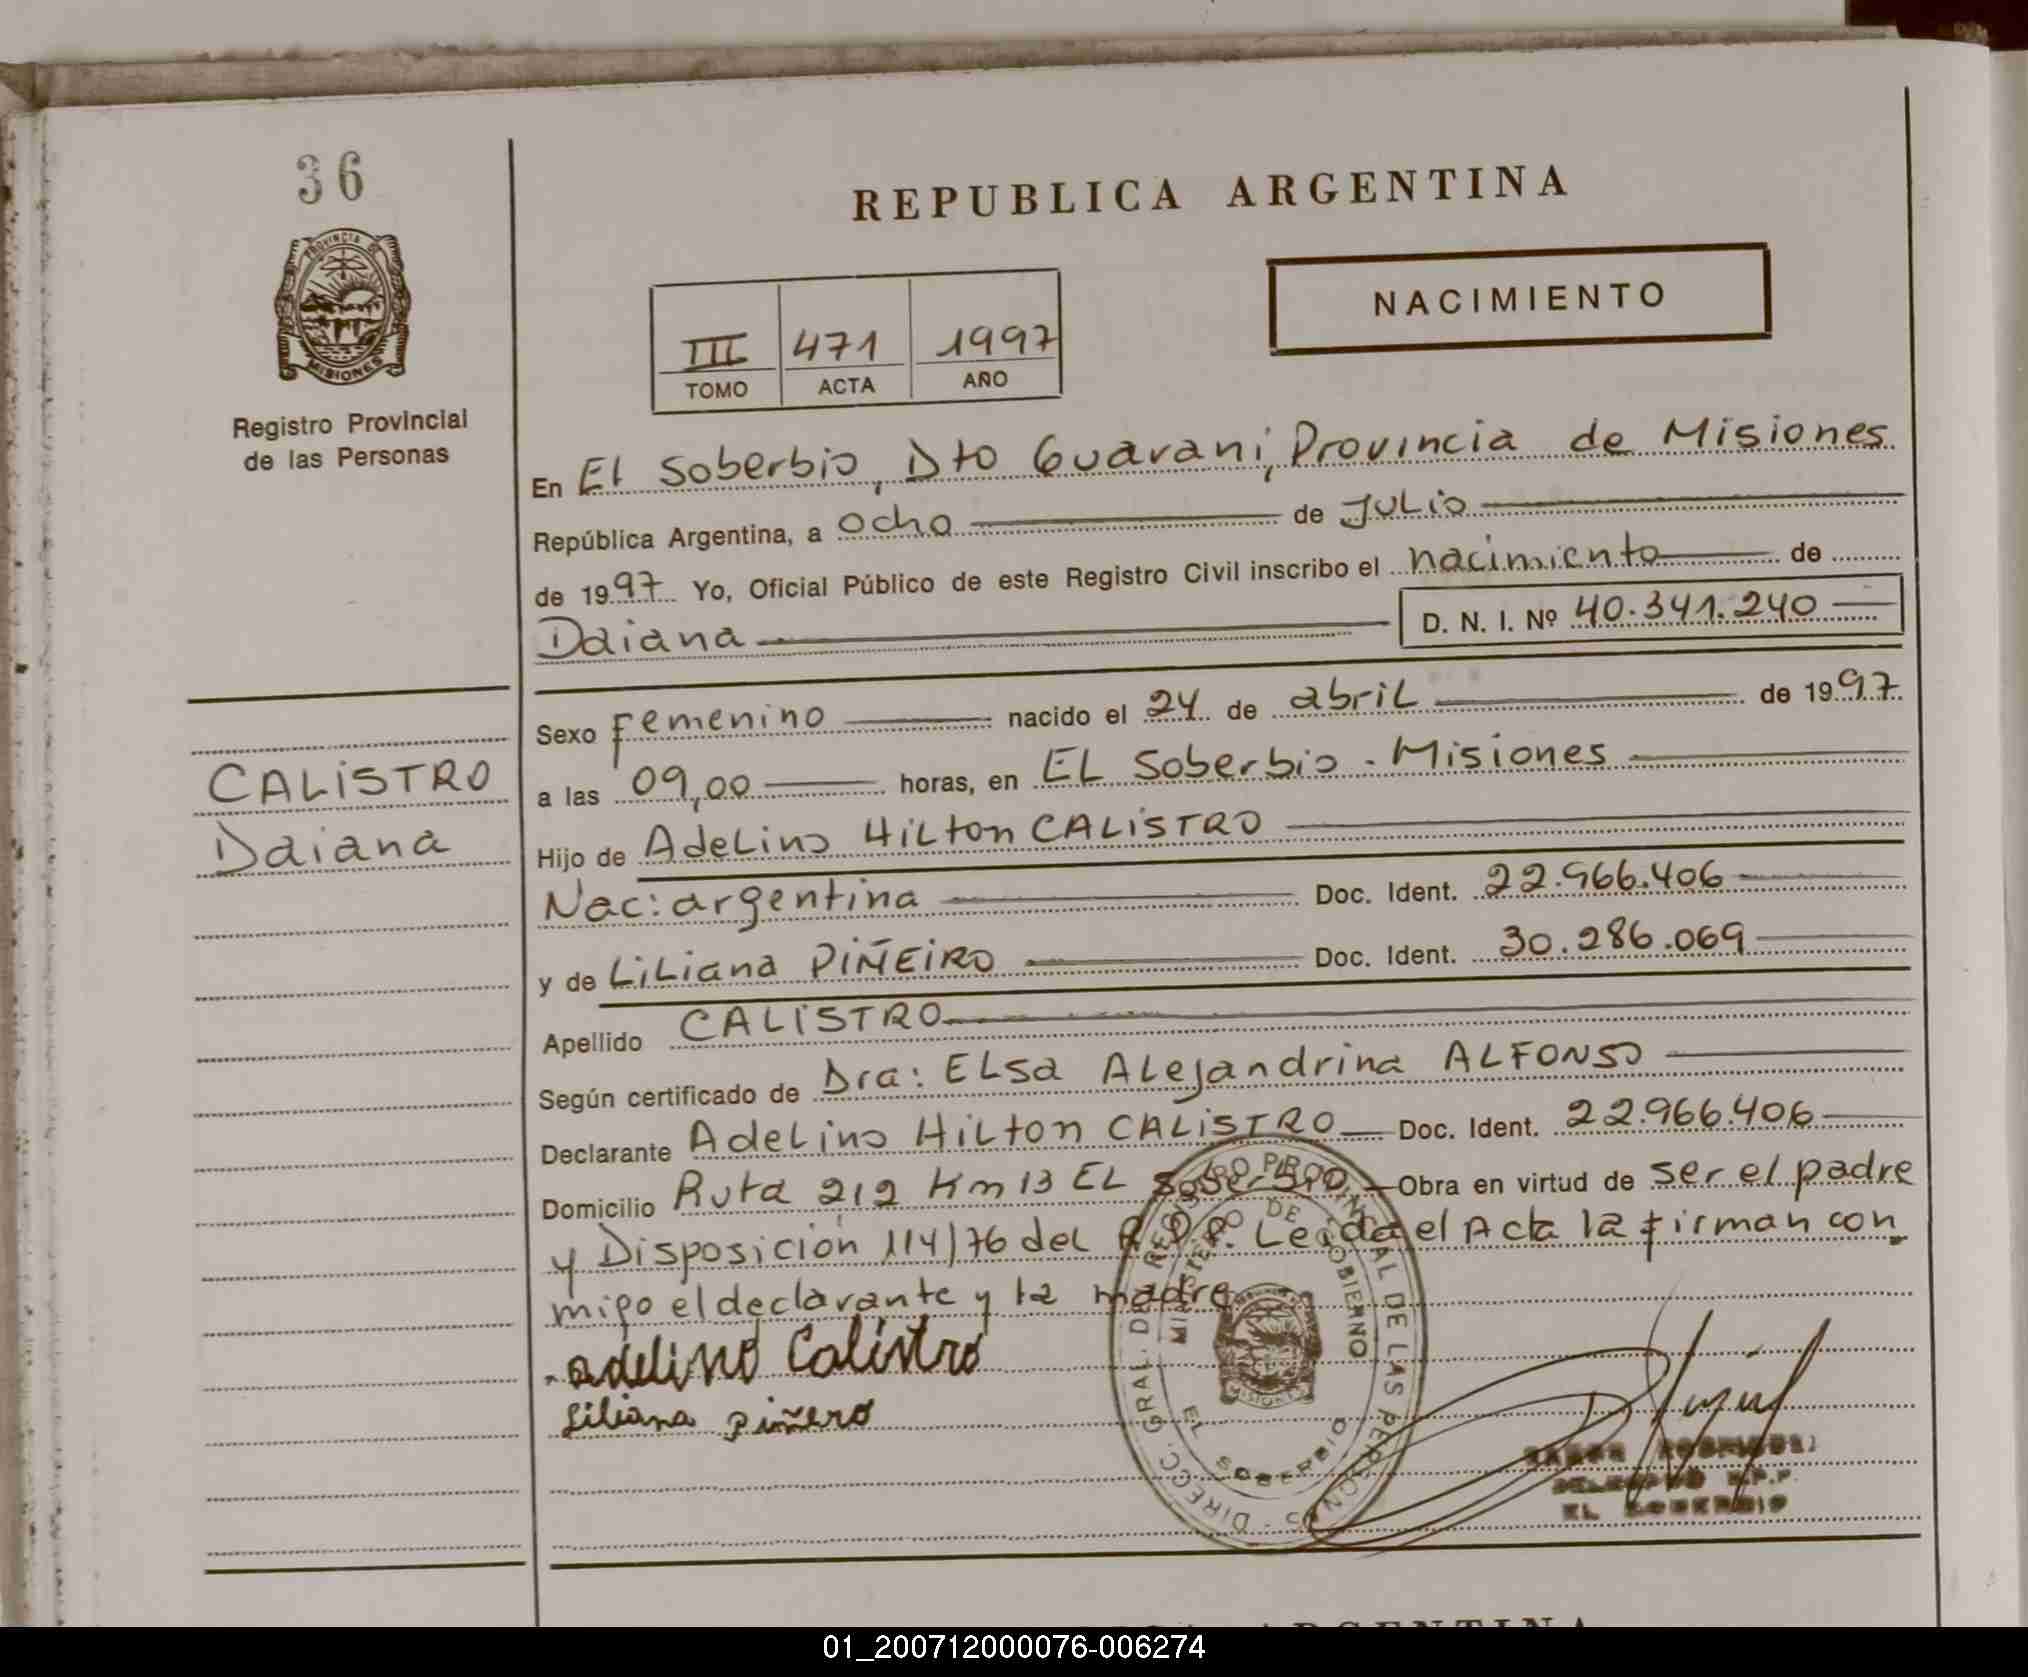 36
PROVINCIA DE
MISIONES
Registro Provincial
de las Personas
REPUBLICA ARGENTINA
NACIMIENTO
III 471 1997
TOMO ACTA AÑO
En El Soberbio, Dto Guarani, Provincia de Misiones
República Argentina, a ocho de Julio
de 1997 Yo, Oficial Público de este Registro Civil inscribo el nacimiento de
Daiana D. N. I. Nº 40.341.240
Sexo Femenino nacido el 24 de abril de 1997
a las 09,00 horas, en El Soberbio - Misiones
CALISTRO
Daiana
Hijo de Adelino Hilton CALISTRO
Nac: argentina Doc. Ident. 22.966.406
y de Liliana PIÑEIRO Doc. Ident. 30.286.069
Apellido CALISTRO
Según certificado de Dra: Elsa Alejandrina ALFONSO
Declarante Adelino Hilton CALISTRO Doc. Ident. 22.966.406
Domicilio Ruta 212 Km 13 El Soberbio Obra en virtud de ser el padre
y Disposición 114/76 del R.P.P. Leida el Acta la firman con
migo el declarante y la madre
Adelino Calistro
Liliana piñero
DIRECC. GRAL. DE REGISTRO PROVINCIAL DE LAS PERSONAS
MINISTERIO DE GOBIERNO
MISIONES
EL SOBERBIO
EL SOBERBIO
ARGENTINA
01_200712000076-006274